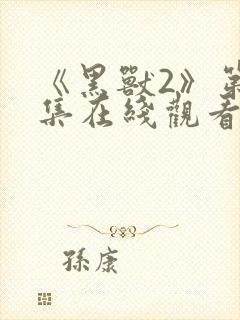 《黑獸2》第
集在綫觀看
孫康